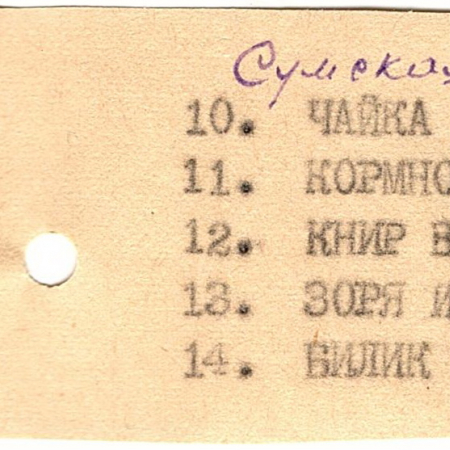 Сумская
10. ЧАЙКА
11. КОРМНО
12. КНИР В
13. ЗОРЯ И
14. БИЛИК